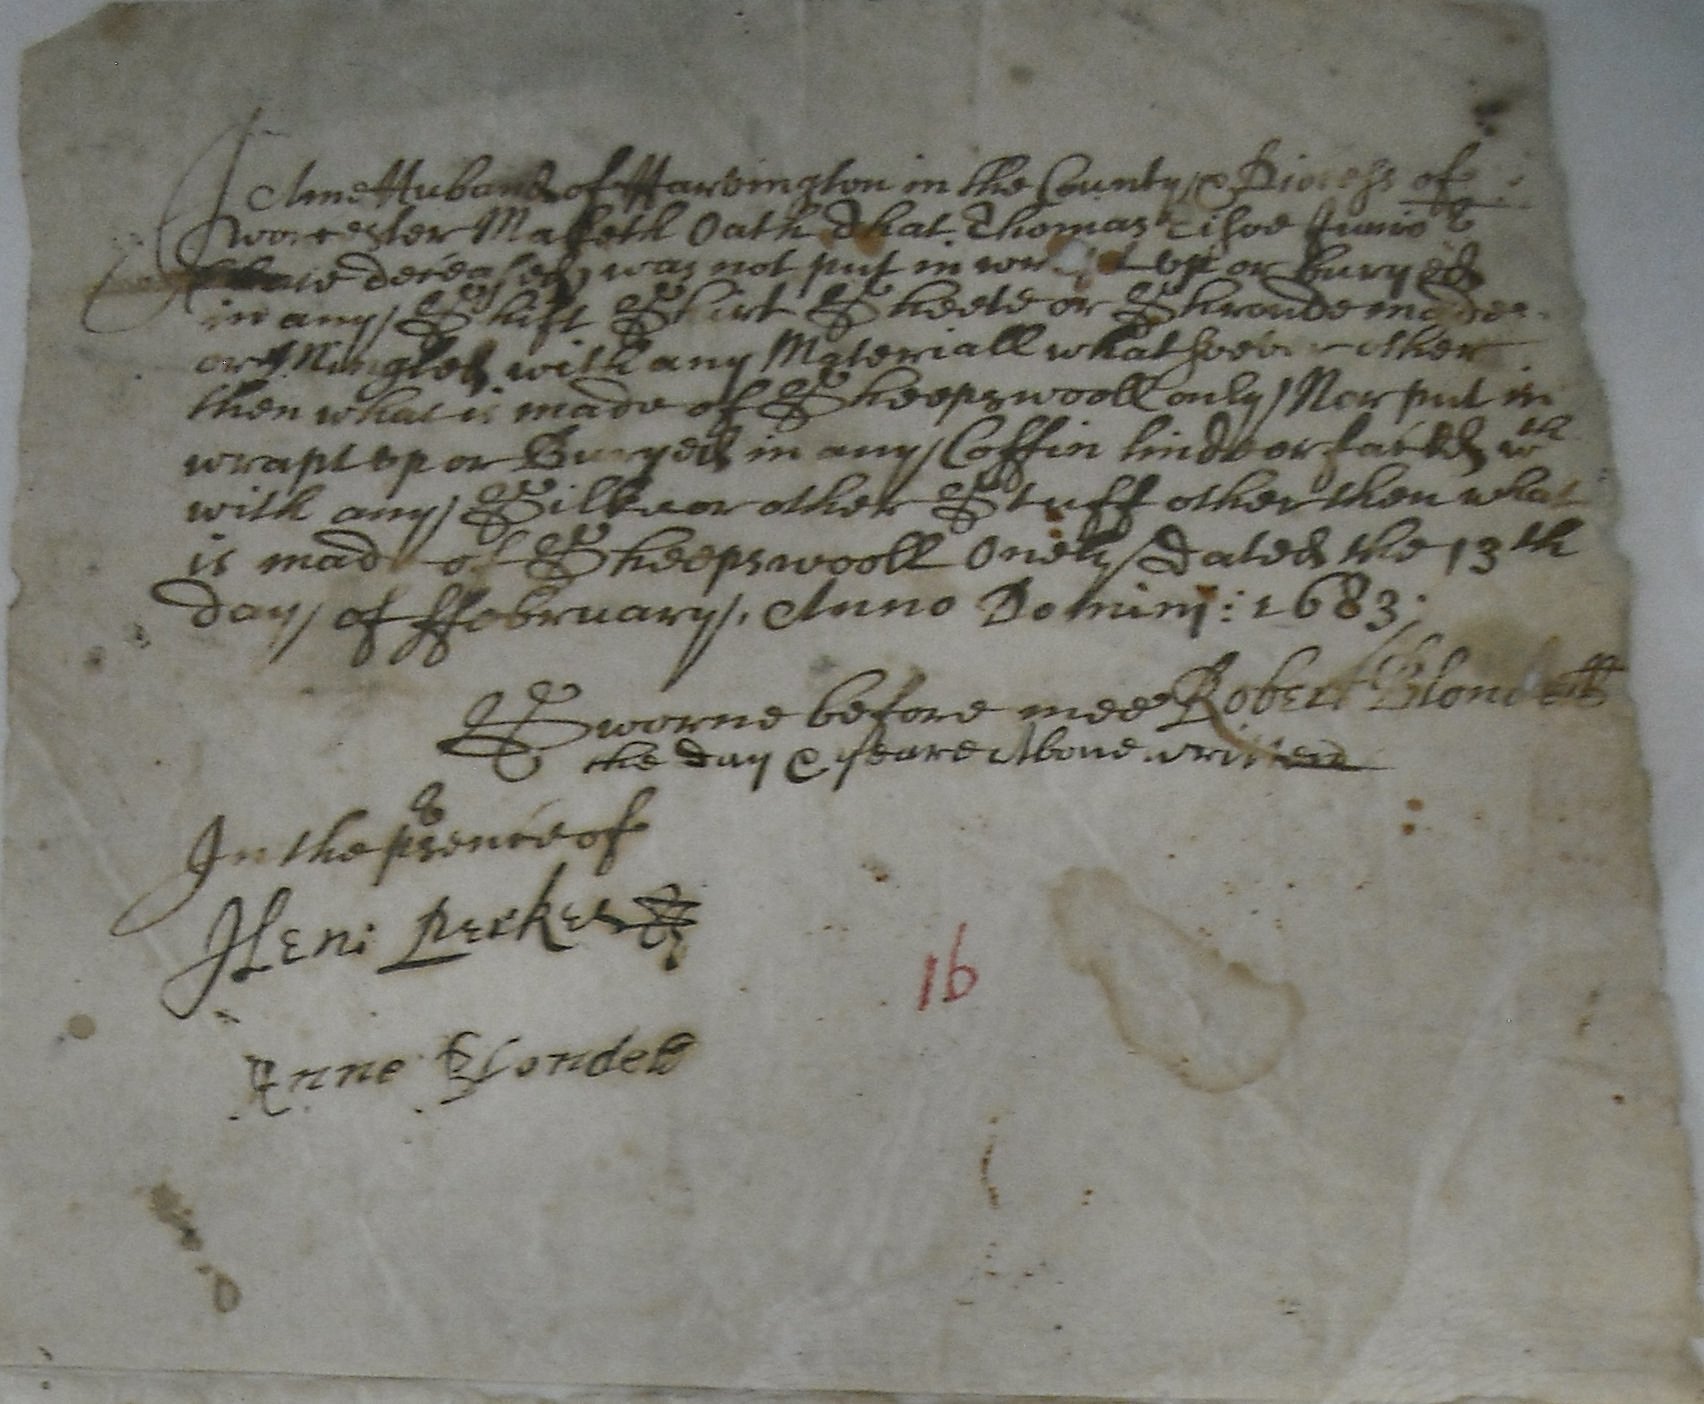 I Ane Huband of Harvington in the County & Diocess of
Worcester Maketh Oath that Thomas Tisoe Junior
late deceased was not put in wrapt up or buryed
in any Shift Shirt Sheete or Shroude made
or Mingled with any Materiall whatsoever other
then what is made of Sheepswooll only Nor put in
wrapt vp or Buryed in any Coffin linde or faced wth
with any Silke or other Stuff other then what
is made of Sheepswooll Onely Dated the 13th
day of ffebruary Anno Dominj: 1683:
Sworne before mee Robert Blondell
the day & yeare Above written
In the prsence of
Heni Perkes
Anne Blondell
16